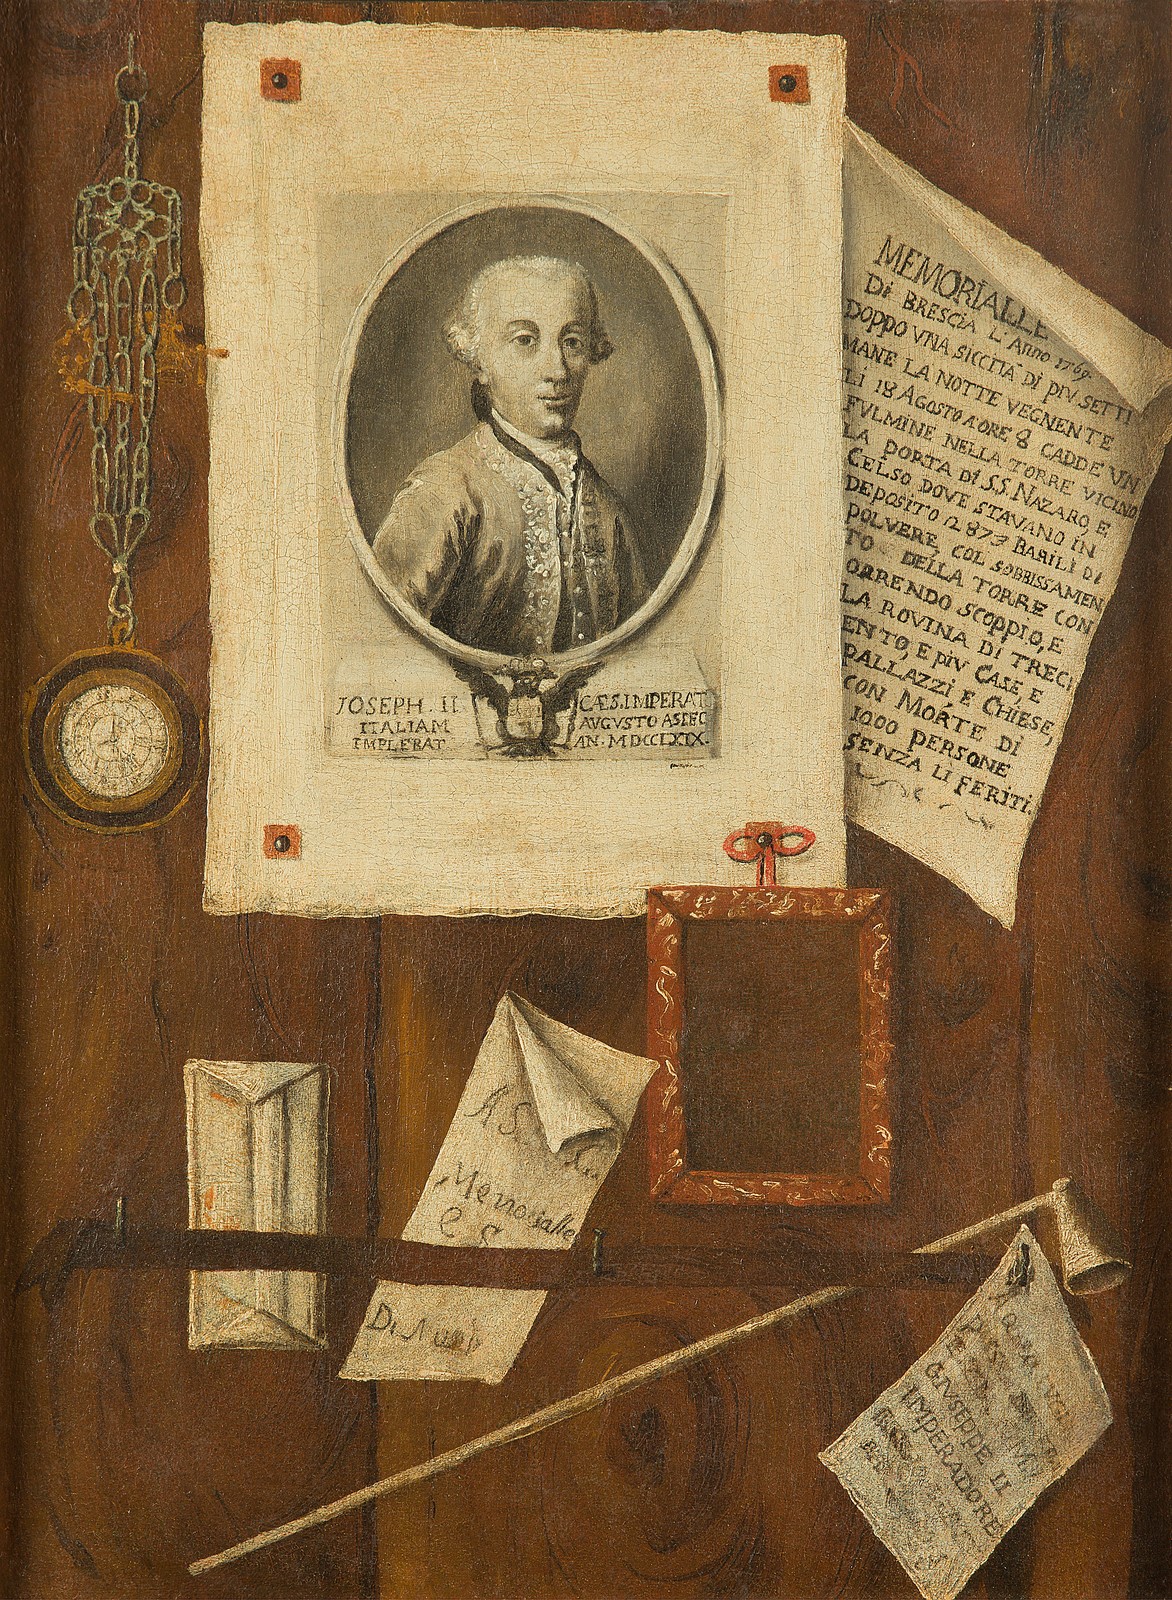 JOSEPH. II CÆS. IMPERAT
ITALIAM AVGVSTO ASPEC
IMPLEBAT AN. MDCCLXIX.
MEMORIALLE
Di BRESCiA L'Anno 1769
DOPPO VNA SICCITA Di PIV. SETTI
MANE LA NOTTE VEGNENTE
Li 18 AGOSTO A ORE 8 CADDE VN
FVLMINE NELLA TORRE VICINO
LA PORTA Di S.S. NAZARO, E
CELSO DOVE STAVANO IN
DEPOSITO 12873 BARILI Di
POLVERE, COL SOBBISSAMEN
TO DELLA TORRE CON
ORRENDO SCOPPIO, E
LA ROVINA Di TRECI
ENTO, E PIV CASE, E
PALLAZZI E CHIESE,
CON MORTE Di
1000 PERSONE
SENZA Li FERiTi.
A S
Memorialle
Di
GIVSEPPE II
IMPERADORE